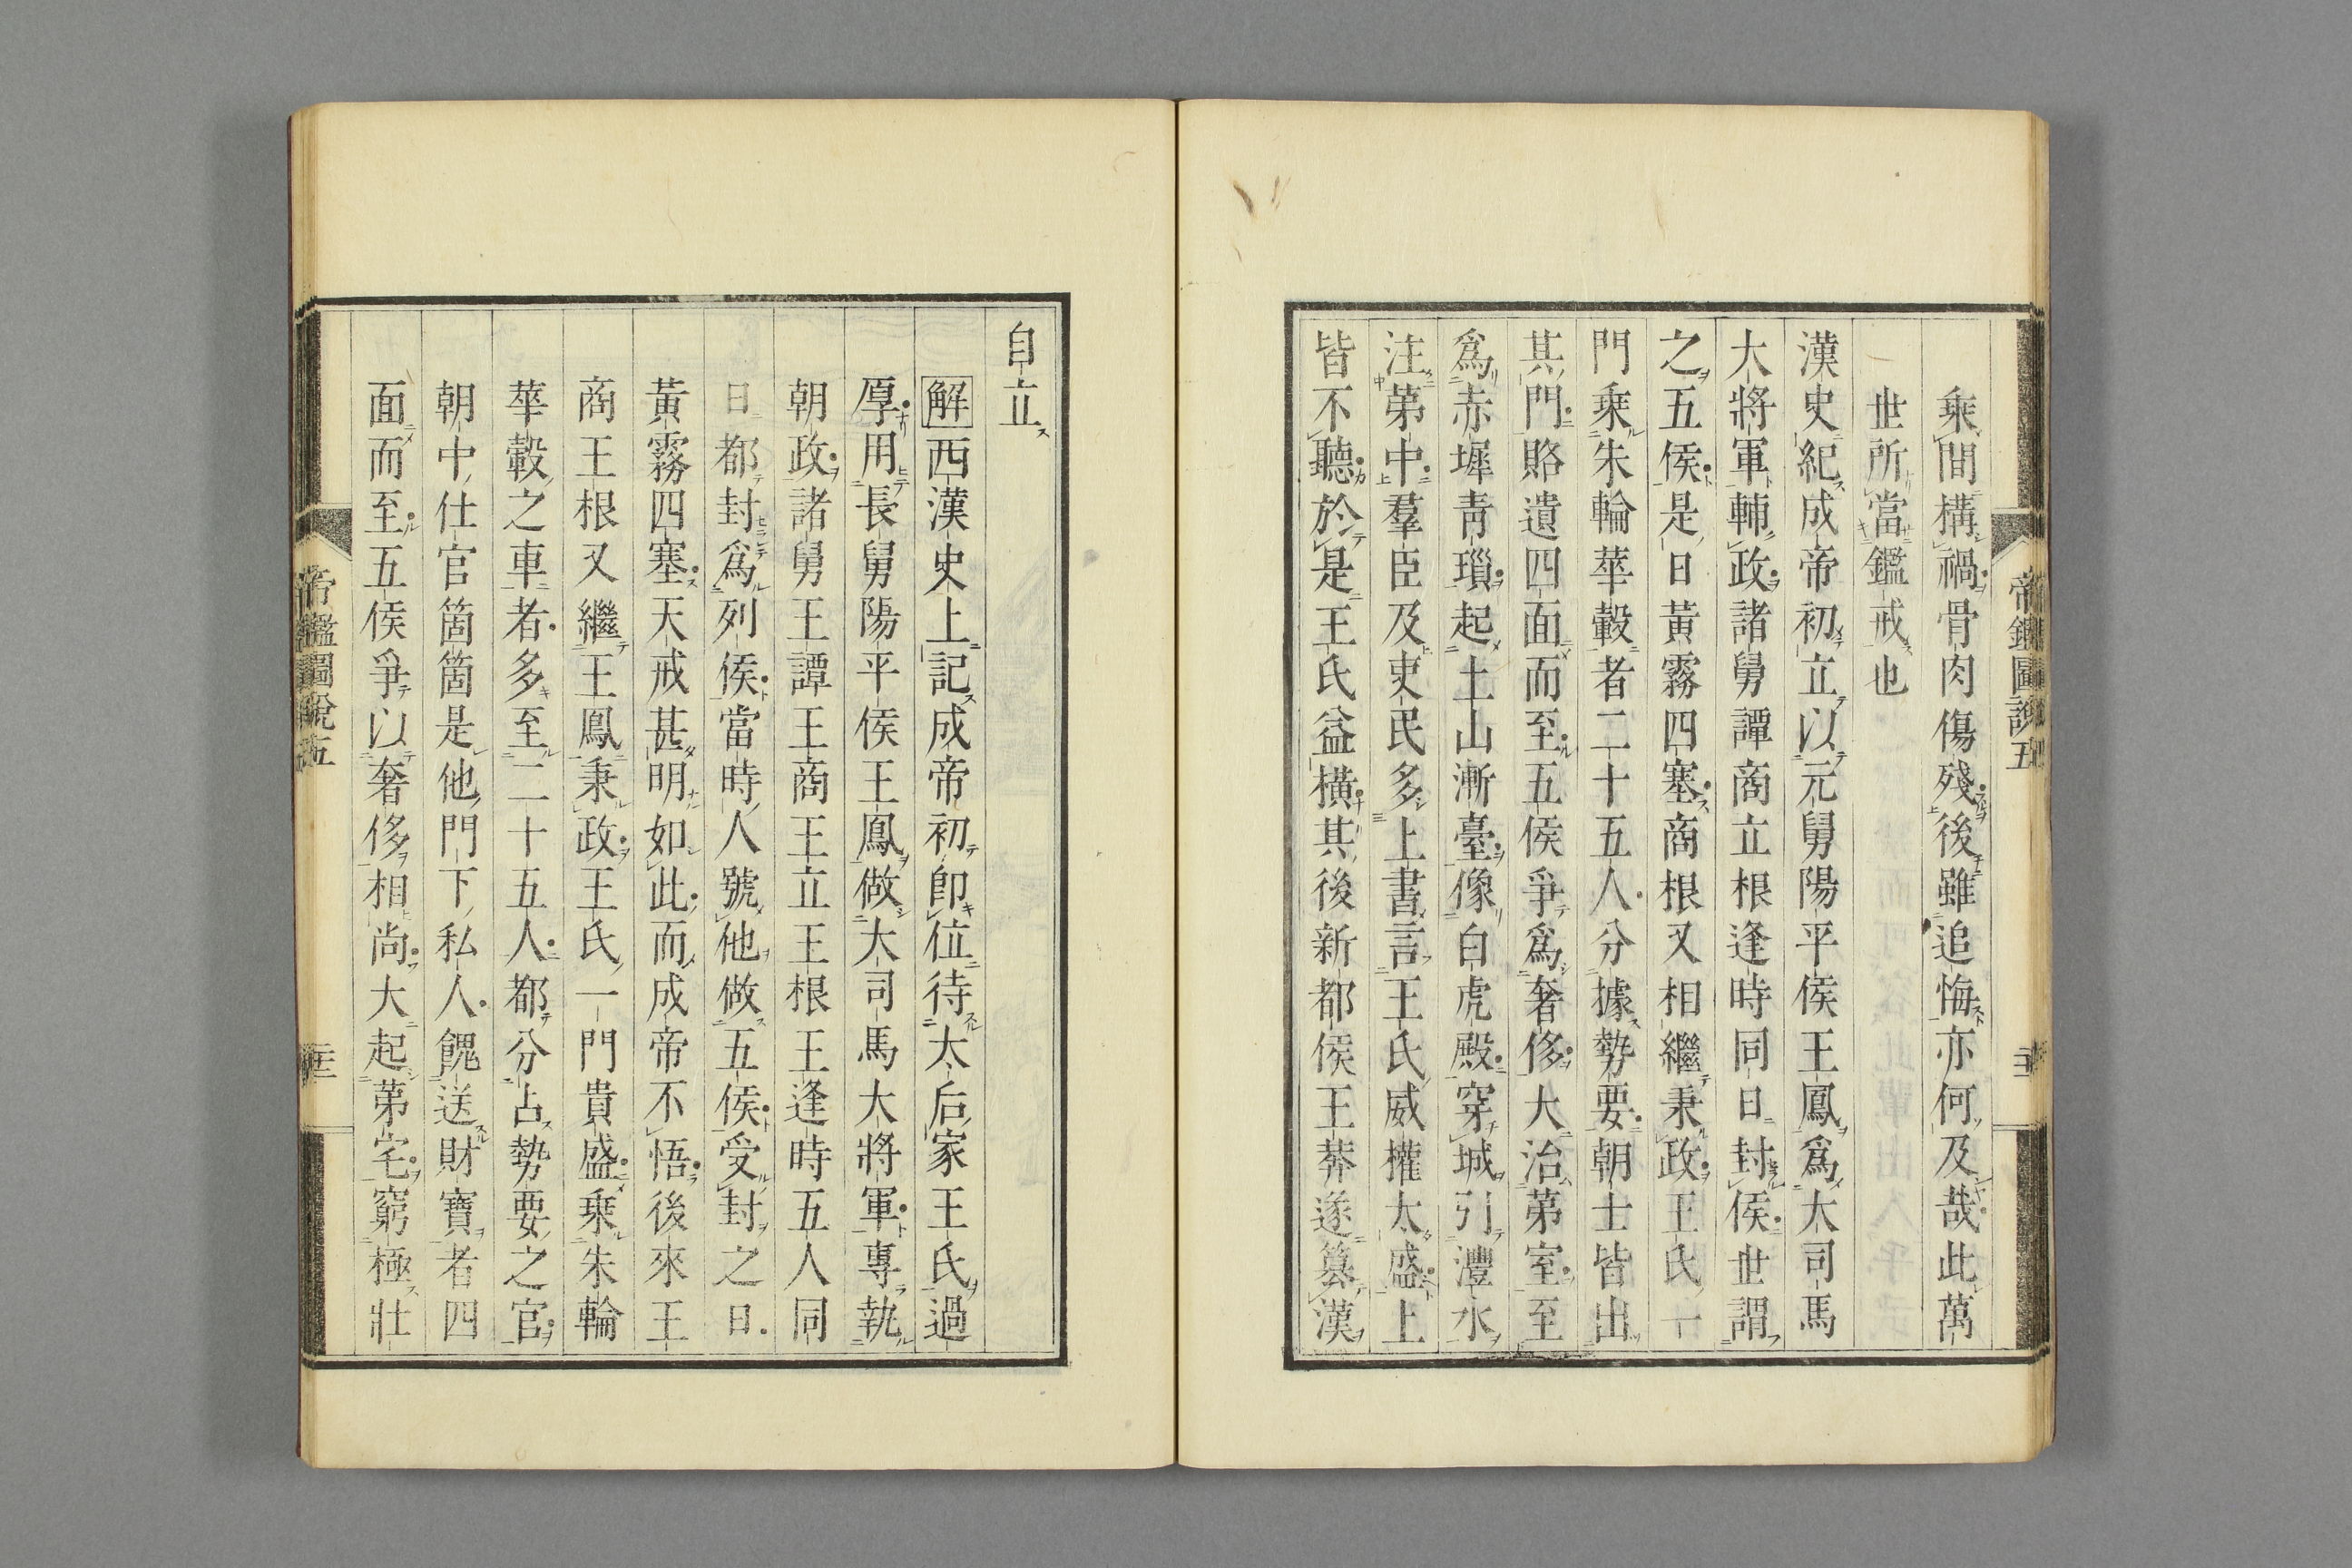 乘間構禍骨肉傷殘後雖追悔亦何及哉此萬
世所當鑑戒也
漢史紀成帝初立以元舅陽平侯王鳳爲大司馬
大將軍輔政諸舅譚商立根逢時同日封侯世謂
之五侯是日黃霧四塞商根又相繼秉政王氏一
門乘朱輪華轂者二十五人分據勢要朝士皆出
其門賂遺四面而至五侯爭爲奢侈大治第室至
爲赤墀靑瑣起土山漸臺像白虎殿穿城引灃水
注第中羣臣及吏民多上書言王氏威權太盛上
皆不聽於是王氏益橫其後新都侯王莽遂簒漢
帝鑑圖說五
自立
解西漢史上記成帝初卽位待太后家王氏過
厚用長舅陽平侯王鳳做大司馬大將軍專執
朝政諸舅王譚王商王立王根王逢時五人同
日都封爲列侯當時人號他做五侯受封之日
黃霧四塞天戒甚明如此而成帝不悟後來王
商王根又繼王鳳秉政王氏一門貴盛乘朱輪
華轂之車者多至二十五人都分占勢要之官
朝中仕官箇箇是他門下私人餽送財寶者四
面而至五侯爭以奢侈相尚大起第宅窮極壯
帝鑑圖說五